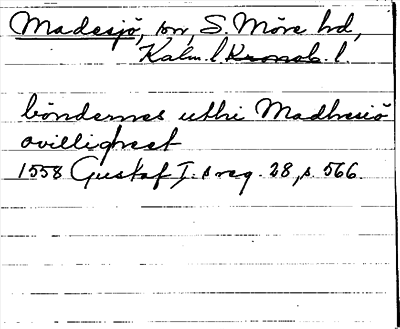 Madesjö, sn, S. Möre hd,
Kalm. l. Kronob. l.
böndernes uthi Madhesiö
ovilligheet
1558 Gustaf I:s reg. 28, s. 566.